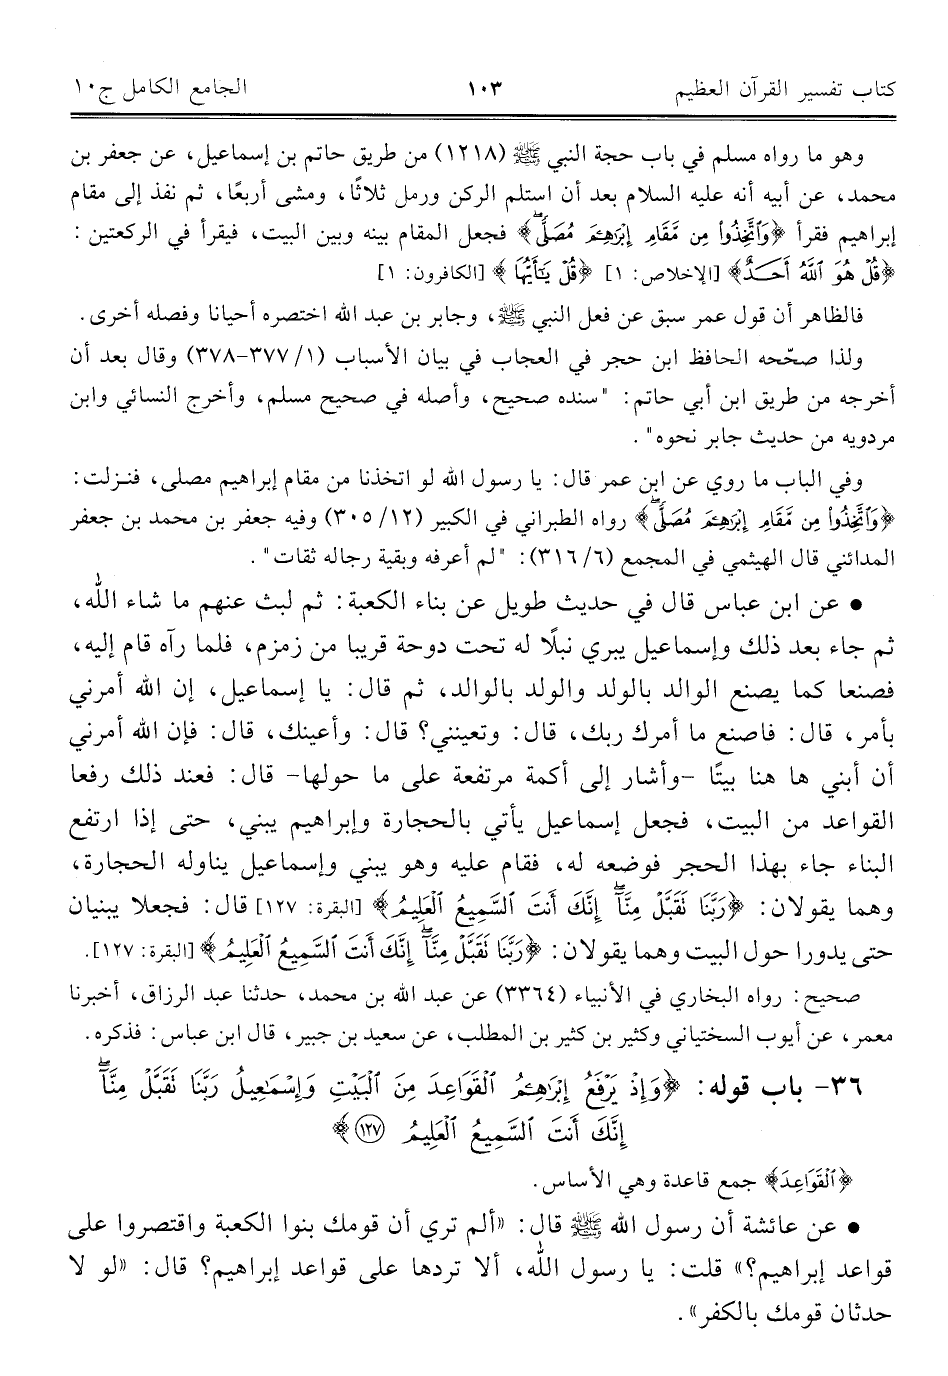 كتاب تفسير القرآن العظيم ١٠٣ الجامع الكامل ج١٠
وهو ما رواه مسلم في باب حجة النبي ﷺ (١٢١٨) من طريق حاتم بن إسماعيل، عن جعفر بن
محمد، عن أبيه أنه عليه السلام بعد أن استلم الركن ورمل ثلاثًا، ومشى أربعًا، ثم نفذ إلى مقام
إبراهيم فقرأ ﴿وَٱتَّخِذُوا۟ مِن مَّقَامِ إِبْرَٰهِـۧمَ مُصَلًّىۖ﴾ فجعل المقام بينه وبين البيت، فيقرأ في الركعتين :
﴿قُلْ هُوَ ٱللَّهُ أَحَدٌ﴾ [الإخلاص: ١] ﴿قُلْ يَٰٓأَيُّهَا﴾ [الكافرون: ١]
فالظاهر أن قول عمر سبق عن فعل النبي ﷺ، وجابر بن عبد الله اختصره أحيانا وفصله أخرى.
ولذا صحّحه الحافظ ابن حجر في العجاب في بيان الأسباب (١/ ٣٧٧-٣٧٨) وقال بعد أن
أخرجه من طريق ابن أبي حاتم: "سنده صحيح، وأصله في صحيح مسلم، وأخرج النسائي وابن
مردويه من حديث جابر نحوه".
وفي الباب ما روي عن ابن عمر قال: يا رسول الله لو اتخذنا من مقام إبراهيم مصلى، فنـزلت:
﴿وَٱتَّخِذُوا۟ مِن مَّقَامِ إِبْرَٰهِـۧمَ مُصَلًّىۖ﴾ رواه الطبراني في الكبير (١٢/ ٣٠٥) وفيه جعفر بن محمد بن جعفر
المدائني قال الهيثمي في المجمع (٦/ ٣١٦): "لم أعرفه وبقية رجاله ثقات".
• عن ابن عباس قال في حديث طويل عن بناء الكعبة: ثم لبث عنهم ما شاء الله،
ثم جاء بعد ذلك وإسماعيل يبري نبلًا له تحت دوحة قريبا من زمزم، فلما رآه قام إليه،
فصنعا كما يصنع الوالد بالولد والولد بالوالد، ثم قال: يا إسماعيل، إن الله أمرني
بأمر، قال: فاصنع ما أمرك ربك، قال: وتعينني؟ قال: وأعينك، قال: فإن الله أمرني
أن أبني ها هنا بيتًا -وأشار إلى أكمة مرتفعة على ما حولها- قال: فعند ذلك رفعا
القواعد من البيت، فجعل إسماعيل يأتي بالحجارة وإبراهيم يبني، حتى إذا ارتفع
البناء جاء بهذا الحجر فوضعه له، فقام عليه وهو يبني وإسماعيل يناوله الحجارة،
وهما يقولان: ﴿رَبَّنَا تَقَبَّلْ مِنَّآۖ إِنَّكَ أَنتَ ٱلسَّمِيعُ ٱلْعَلِيمُ﴾ [البقرة: ١٢٧] قال: فجعلا يبنيان
حتى يدورا حول البيت وهما يقولان: ﴿رَبَّنَا تَقَبَّلْ مِنَّآۖ إِنَّكَ أَنتَ ٱلسَّمِيعُ ٱلْعَلِيمُ﴾ [البقرة: ١٢٧].
صحيح: رواه البخاري في الأنبياء (٣٣٦٤) عن عبد الله بن محمد، حدثنا عبد الرزاق، أخبرنا
معمر، عن أيوب السختياني وكثير بن كثير بن المطلب، عن سعيد بن جبير، قال ابن عباس: فذكره.
٣٦- باب قوله: ﴿وَإِذْ يَرْفَعُ إِبْرَٰهِـۧمُ ٱلْقَوَاعِدَ مِنَ ٱلْبَيْتِ وَإِسْمَٰعِيلُ رَبَّنَا تَقَبَّلْ مِنَّآۖ
إِنَّكَ أَنتَ ٱلسَّمِيعُ ٱلْعَلِيمُ ١٢٧﴾
﴿ٱلْقَوَاعِدَ﴾ جمع قاعدة وهي الأساس.
• عن عائشة أن رسول الله ﷺ قال: «ألم تري أن قومك بنوا الكعبة واقتصروا على
قواعد إبراهيم؟» قلت: يا رسول الله، ألا تردها على قواعد إبراهيم؟ قال: «لو لا
حدثان قومك بالكفر».